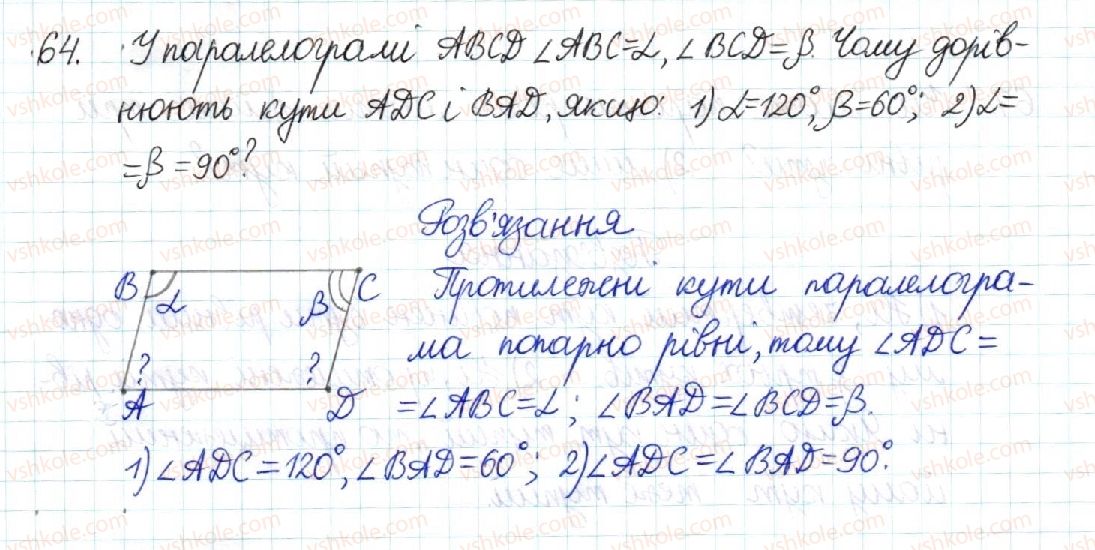 64. У паралелограмі ABCD ∠ABC=α, ∠BCD=β. Чому дорів-
нюють кути ADC і BAD, якщо: 1) α=120°, β=60°; 2) α=
=β=90°?
Розв'язання
B α β C
? ?
A D
Протилежні кути паралелогра-
ма попарно рівні, тому ∠ADC=
=∠ABC=α; ∠BAD=∠BCD=β.
1) ∠ADC=120°, ∠BAD=60°; 2) ∠ADC=∠BAD=90°.
vshkole.com